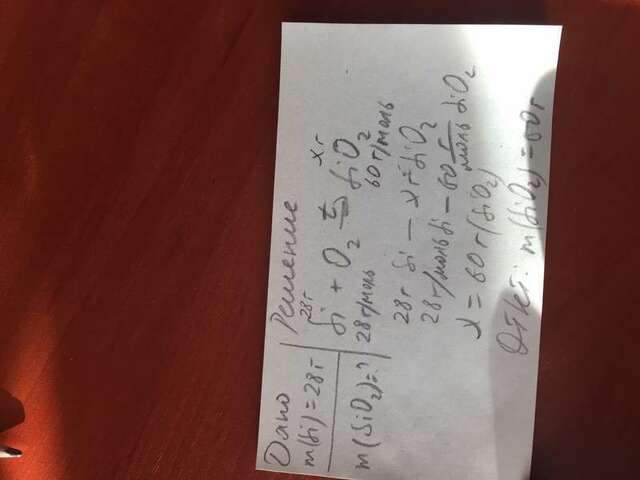 Дано
m(Si)=28г
m(SiO₂)=?
Решение
28г xг
Si + O₂ t→ SiO₂
28г/моль 60г/моль
28г Si — xг SiO₂
28г/моль Si — 60 г/моль SiO₂
x = 60г(SiO₂)
Ответ: m(SiO₂)=60г